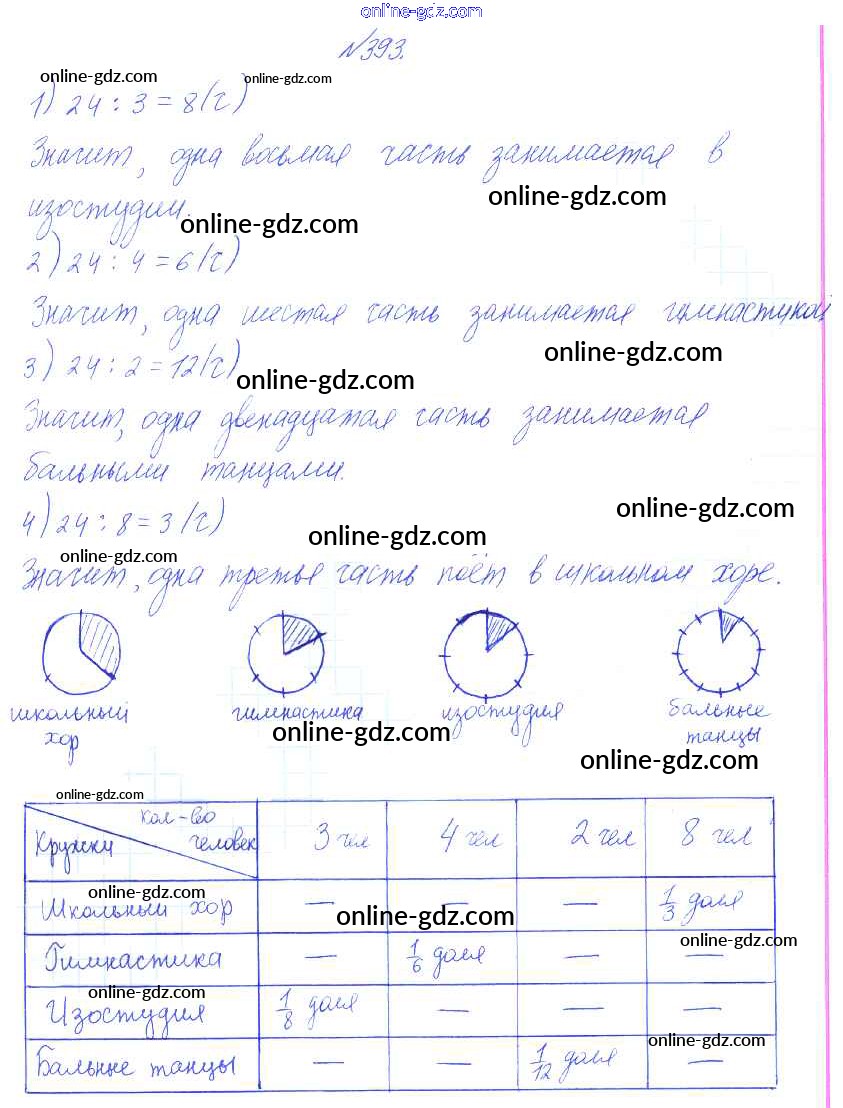 online-gdz.com
№393.
online-gdz.com online-gdz.com
1) 24 : 3 = 8 (ч)
Значит, одна восьмая часть занимается в
online-gdz.com
изостудии.
online-gdz.com
2) 24 : 4 = 6 (ч)
Значит, одна шестая часть занимается гимнастикой
online-gdz.com
3) 24 : 2 = 12 (ч)
online-gdz.com
Значит, одна двенадцатая часть занимается
бальными танцами.
online-gdz.com
4) 24 : 8 = 3 (ч)
online-gdz.com
online-gdz.com
Значит, одна третья часть поёт в школьном хоре.
школьный хор
гимнастика
изостудия
бальные танцы
online-gdz.com
online-gdz.com
online-gdz.com
Кружки кол-во человек 3 чел 4 чел 2 чел 8 чел
online-gdz.com
Школьный хор — — — 1/3 доля
online-gdz.com
online-gdz.com
Гимнастика — 1/6 доля — —
online-gdz.com
Изостудия 1/8 доля — — —
online-gdz.com
Бальные танцы — — 1/12 доля —